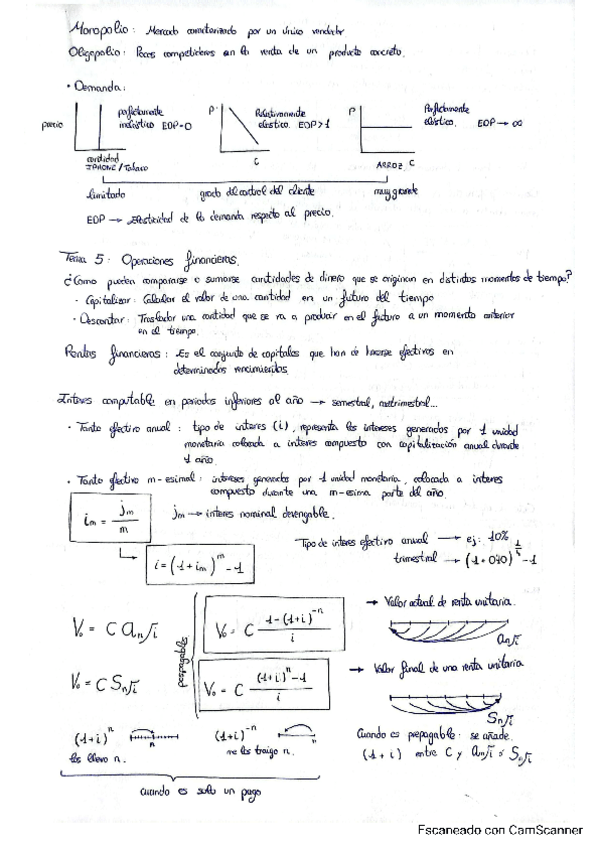 Monopolio: Mercado caracterizado por un único vendedor
Oligopolio: Pocos competidores en la venta de un producto concreto.
· Demanda:
precio
perfectamente inelástico EDP=0
cantidad
IPHONE/Tabaco
P
Relativamente elástico. EDP>1
C
P
Perfectamente elástico. EDP→∞
ARROZ C
limitado grado del control del cliente muy grande
EDP → Elasticidad de la demanda respecto al precio.
Tema 5: Operaciones financieras.
¿Como pueden compararse o sumarse cantidades de dinero que se originan en distintos momentos de tiempo?
· Capitalizar: Calcular el valor de una cantidad en un futuro del tiempo
· Descontar: Trasladar una cantidad que se va a producir en el futuro a un momento anterior
en el tiempo.
Rentas financieras: Es el conjunto de capitales que han de hacerse efectivos en
determinados vencimientos.
Interes computable en periodos inferiores al año → semestral, cuatrimestral...
· Tanto efectivo anual: tipo de interes (i), representa los intereses generados por 1 unidad
monetaria colocada a interes compuesto con capitalización anual durante
1 año.
· Tanto efectivo m-esimal: intereses generados por 1 unidad monetaria, colocada a interes
compuesto durante una m-esima parte del año.
im = jm/m
jm → interes nominal devengable.
i = (1+im)^m - 1
Tipo de interes efectivo anual → ej: 10%
trimestral → (1+0'10)^1/4 - 1
V₀ = C an⌉i
pospagables
V₀ = C (1-(1+i)^-n)/i
→ Valor actual de renta unitaria.
an⌉i
V₀ = C Sn⌉i
V₀ = C ((1+i)^n - 1)/i
→ Valor final de una renta unitaria
Sn⌉i
(1+i)^n
n
los llevo n.
(1+i)^-n
n
me los traigo n.
Cuando es prepagable: se añade.
(1+i) entre C y an⌉i o Sn⌉i
cuando es solo un pago
Escaneado con CamScanner